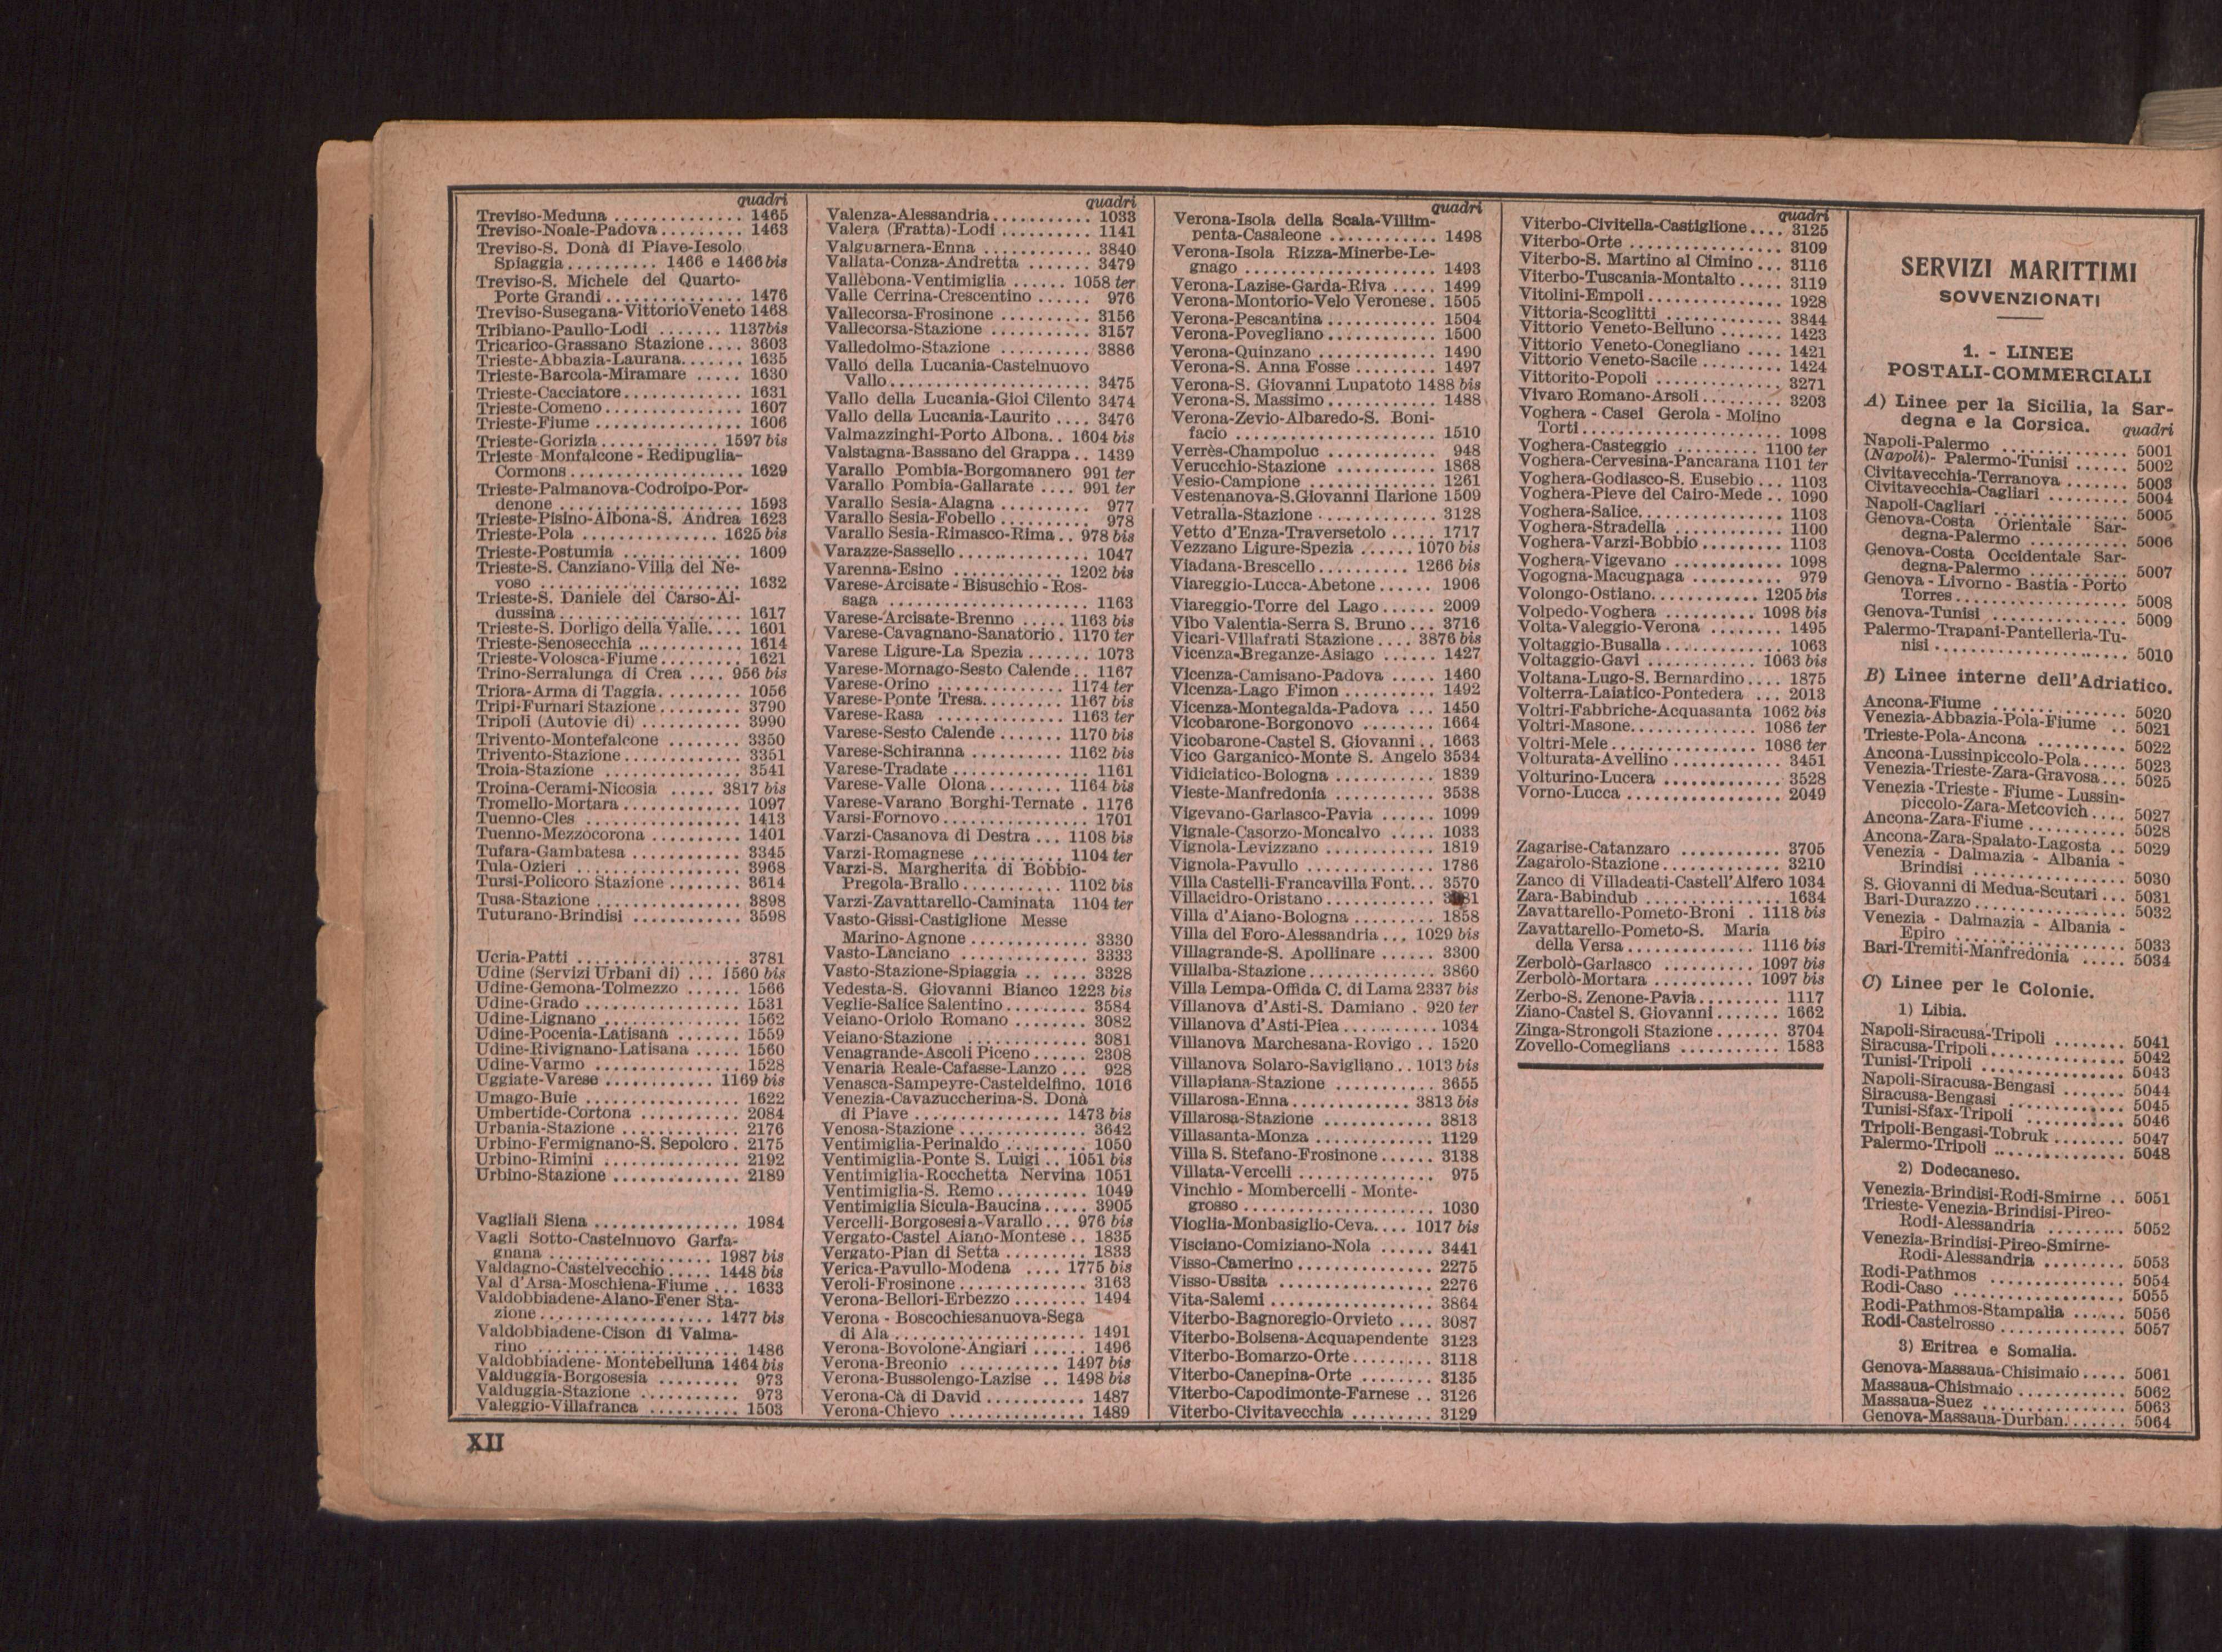 quadri
Treviso-Meduna .............. 1465
Treviso-Noale-Padova ......... 1463
Treviso-S. Donà di Piave-Iesolo
Spiaggia .......... 1466 e 1466 bis
Treviso-S. Michele del Quarto-
Porte Grandi ............... 1476
Treviso-Susegana-Vittorio Veneto 1468
Tribiano-Paullo-Lodi ....... 1137 bis
Tricarico-Grassano Stazione .... 3603
Trieste-Abbazia-Laurana....... 1635
Trieste-Barcola-Miramare ..... 1630
Trieste-Cacciatore ............. 1631
Trieste-Comeno............... 1607
Trieste-Fiume ................ 1606
Trieste-Gorizia ............. 1597 bis
Trieste Monfalcone - Redipuglia-
Cormons ................... 1629
Trieste-Palmanova-Codroipo-Por-
denone .................... 1593
Trieste-Pisino-Albona-S. Andrea 1623
Trieste-Pola ............... 1625 bis
Trieste-Postumia ............. 1609
Trieste-S. Canziano-Villa del Ne-
voso ...................... 1632
Trieste-S. Daniele del Carso-Ai-
dussina .................... 1617
Trieste-S. Dorligo della Valle.... 1601
Trieste-Senosecchia ........... 1614
Trieste-Volosca-Fiume ......... 1621
Trino-Serralunga di Crea .... 956 bis
Triora-Arma di Taggia......... 1056
Tripi-Furnari Stazione ......... 3790
Tripoli (Autovie di) ........... 3990
Trivento-Montefalcone ........ 3350
Trivento-Stazione ............. 3351
Troia-Stazione ............... 3541
Troina-Cerami-Nicosia ..... 3817 bis
Tromello-Mortara ............. 1097
Tuenno-Cles ................. 1413
Tuenno-Mezzocorona .......... 1401
Tufara-Gambatesa ............ 3345
Tula-Ozieri .................. 3968
Tursi-Policoro Stazione ........ 3614
Tusa-Stazione ................ 3898
Tuturano-Brindisi ............ 3598
Ucria-Patti .................. 3781
Udine (Servizi Urbani di) ... 1560 bis
Udine-Gemona-Tolmezzo ...... 1566
Udine-Grado ................. 1531
Udine-Lignano ............... 1562
Udine-Pocenia-Latisana ....... 1559
Udine-Rivignano-Latisana ..... 1560
Udine-Varmo ................ 1528
Uggiate-Varese ............ 1169 bis
Umago-Buie ................. 1622
Umbertide-Cortona ........... 2084
Urbania-Stazione ............. 2176
Urbino-Fermignano-S. Sepolcro . 2175
Urbino-Rimini ............... 2192
Urbino-Stazione .............. 2189
Vagliali Siena ................ 1984
Vagli Sotto-Castelnuovo Garfa-
gnana ................... 1987 bis
Valdagno-Castelvecchio ..... 1448 bis
Val d'Arsa-Moschiena-Fiume ... 1633
Valdobbiadene-Alano-Fener Sta-
zione .................... 1477 bis
Valdobbiadene-Cison di Valma-
rino ....................... 1486
Valdobbiadene-Montebelluna 1464 bis
Valduggia-Borgosesia ......... 973
Valduggia-Stazione ........... 973
Valeggio-Villafranca .......... 1503
XII
quadri
Valenza-Alessandria ........... 1033
Valera (Fratta)-Lodi .......... 1141
Valguarnera-Enna ............ 3840
Vallata-Conza-Andretta ....... 3479
Vallebona-Ventimiglia ...... 1058 ter
Valle Cerrina-Crescentino ...... 976
Vallecorsa-Frosinone .......... 3156
Vallecorsa-Stazione ........... 3157
Valledolmo-Stazione .......... 3886
Vallo della Lucania-Castelnuovo
Vallo...................... 3475
Vallo della Lucania-Gioi Cilento 3474
Vallo della Lucania-Laurito .... 3476
Valmazzinghi-Porto Albona.. 1604 bis
Valstagna-Bassano del Grappa .. 1439
Varallo Pombia-Borgomanero 991 ter
Varallo Pombia-Gallarate .... 991 ter
Varallo Sesia-Alagna .......... 977
Varallo Sesia-Fobello .......... 978
Varallo Sesia-Rimasco-Rima .. 978 bis
Varazze-Sassello .............. 1047
Varenna-Esino ............ 1202 bis
Varese-Arcisate - Bisuschio - Ros-
saga ...................... 1163
Varese-Arcisate-Brenno ..... 1163 bis
Varese-Cavagnano-Sanatorio . 1170 ter
Varese Ligure-La Spezia ....... 1073
Varese-Mornago-Sesto Calende .. 1167
Varese-Orino .............. 1174 ter
Varese-Ponte Tresa......... 1167 bis
Varese-Rasa .............. 1163 ter
Varese-Sesto Calende ....... 1170 bis
Varese-Schiranna ........... 1162 bis
Varese-Tradate ............... 1161
Varese-Valle Olona........ 1164 bis
Varese-Varano Borghi-Ternate . 1176
Varsi-Fornovo................ 1701
Varzi-Casanova di Destra ... 1108 bis
Varzi-Romagnese .......... 1104 ter
Varzi-S. Margherita di Bobbio-
Pregola-Brallo ........... 1102 bis
Varzi-Zavattarello-Caminata 1104 ter
Vasto-Gissi-Castiglione Messe
Marino-Agnone ............. 3330
Vasto-Lanciano .............. 3333
Vasto-Stazione-Spiaggia .. .... 3328
Vedesta-S. Giovanni Bianco 1223 bis
Veglie-Salice Salentino ......... 3584
Veiano-Oriolo Romano ........ 3082
Veiano-Stazione ............. 3081
Venagrande-Ascoli Piceno ...... 2308
Venaria Reale-Cafasse-Lanzo ... 928
Venasca-Sampeyre-Casteldelfino. 1016
Venezia-Cavazuccherina-S. Donà
di Piave ................ 1473 bis
Venosa-Stazione .............. 3642
Ventimiglia-Perinaldo ......... 1050
Ventimiglia-Ponte S. Luigi .. 1051 bis
Ventimiglia-Rocchetta Nervina 1051
Ventimiglia-S. Remo .......... 1049
Ventimiglia Sicula-Baucina ..... 3905
Vercelli-Borgosesia-Varallo ... 976 bis
Vergato-Castel Aiano-Montese .. 1835
Vergato-Pian di Setta ......... 1833
Verica-Pavullo-Modena .... 1775 bis
Veroli-Frosinone .............. 3163
Verona-Bellori-Erbezzo ........ 1494
Verona - Boscochiesanuova-Sega
di Ala ..................... 1491
Verona-Bovolone-Angiari ...... 1496
Verona-Breonio ........... 1497 bis
Verona-Bussolengo-Lazise .. 1498 bis
Verona-Cà di David ........... 1487
Verona-Chievo ............... 1489
quadri
Verona-Isola della Scala-Villim-
penta-Casaleone ............ 1498
Verona-Isola Rizza-Minerbe-Le-
gnago ..................... 1493
Verona-Lazise-Garda-Riva ..... 1499
Verona-Montorio-Velo Veronese . 1505
Verona-Pescantina ............ 1504
Verona-Povegliano ............ 1500
Verona-Quinzano ............. 1490
Verona-S. Anna Fosse ......... 1497
Verona-S. Giovanni Lupatoto 1488 bis
Verona-S. Massimo ............ 1488
Verona-Zevio-Albaredo-S. Boni-
facio ...................... 1510
Verrès-Champoluc ............ 948
Verucchio-Stazione ........... 1868
Vesio-Campione .............. 1261
Vestenanova-S.Giovanni Ilarione 1509
Vetralla-Stazione ............. 3128
Vetto d'Enza-Traversetolo ..... 1717
Vezzano Ligure-Spezia ...... 1070 bis
Viadana-Brescello .......... 1266 bis
Viareggio-Lucca-Abetone ...... 1906
Viareggio-Torre del Lago ...... 2009
Vibo Valentia-Serra S. Bruno ... 3716
Vicari-Villafrati Stazione .... 3876 bis
Vicenza-Breganze-Asiago ...... 1427
Vicenza-Camisano-Padova ..... 1460
Vicenza-Lago Fimon .......... 1492
Vicenza-Montegalda-Padova ... 1450
Vicobarone-Borgonovo ........ 1664
Vicobarone-Castel S. Giovanni .. 1663
Vico Garganico-Monte S. Angelo 3534
Vidiciatico-Bologna ........... 1839
Vieste-Manfredonia ........... 3538
Vigevano-Garlasco-Pavia ...... 1099
Vignale-Casorzo-Moncalvo ..... 1033
Vignola-Levizzano ............ 1819
Vignola-Pavullo .............. 1786
Villa Castelli-Francavilla Font... 3570
Villacidro-Oristano .............
Villa d'Aiano-Bologna ......... 1858
Villa del Foro-Alessandria ... 1029 bis
Villagrande-S. Apollinare ...... 3300
Villalba-Stazione .............. 3860
Villa Lempa-Offida C. di Lama 2337 bis
Villanova d'Asti-S. Damiano . 920 ter
Villanova d'Asti-Piea .......... 1034
Villanova Marchesana-Rovigo .. 1520
Villanova Solaro-Savigliano .. 1013 bis
Villapiana-Stazione ........... 3655
Villarosa-Enna ............. 3813 bis
Villarosa-Stazione ............ 3813
Villasanta-Monza ............. 1129
Villa S. Stefano-Frosinone ...... 3138
Villata-Vercelli ............... 975
Vinchio - Mombercelli - Monte-
grosso ..................... 1030
Vioglia-Monbasiglio-Ceva.... 1017 bis
Visciano-Comiziano-Nola ...... 3441
Visso-Camerino ............... 2275
Visso-Ussita ................. 2276
Vita-Salemi .................. 3864
Viterbo-Bagnoregio-Orvieto .... 3087
Viterbo-Bolsena-Acquapendente 3123
Viterbo-Bomarzo-Orte ......... 3118
Viterbo-Canepina-Orte ........ 3135
Viterbo-Capodimonte-Farnese .. 3126
Viterbo-Civitavecchia ......... 3129
quadri
Viterbo-Civitella-Castiglione .... 3125
Viterbo-Orte ................. 3109
Viterbo-S. Martino al Cimino ... 3116
Viterbo-Tuscania-Montalto ..... 3119
Vitolini-Empoli ............... 1928
Vittoria-Scoglitti ............. 3844
Vittorio Veneto-Belluno ...... 1423
Vittorio Veneto-Conegliano .... 1421
Vittorio Veneto-Sacile ......... 1424
Vittorito-Popoli .............. 3271
Vivaro Romano-Arsoli ......... 3203
Voghera - Casei Gerola - Molino
Torti ...................... 1098
Voghera-Casteggio ......... 1100 ter
Voghera-Cervesina-Pancarana 1101 ter
Voghera-Godiasco-S. Eusebio ... 1103
Voghera-Pieve del Cairo-Mede .. 1090
Voghera-Salice................ 1103
Voghera-Stradella ............ 1100
Voghera-Varzi-Bobbio ......... 1103
Voghera-Vigevano ............ 1098
Vogogna-Macugpaga .......... 979
Volongo-Ostiano............ 1205 bis
Volpedo-Voghera .......... 1098 bis
Volta-Valeggio-Verona ........ 1495
Voltaggio-Busalla ............. 1063
Voltaggio-Gavi ............ 1063 bis
Voltana-Lugo-S. Bernardino .... 1875
Volterra-Laiatico-Pontedera ... 2013
Voltri-Fabbriche-Acquasanta 1062 bis
Voltri-Masone.............. 1086 ter
Voltri-Mele ................ 1086 ter
Volturata-Avellino ............ 3451
Volturino-Lucera ............. 3528
Vorno-Lucca ................. 2049
Zagarise-Catanzaro ........... 3705
Zagarolo-Stazione ............. 3210
Zanco di Villadeati-Castell'Alfero 1034
Zara-Babindub ............... 1634
Zavattarello-Pometo-Broni . 1118 bis
Zavattarello-Pometo-S. Maria
della Versa ............. 1116 bis
Zerbolò-Garlasco .......... 1097 bis
Zerbolò-Mortara ........... 1097 bis
Zerbo-S. Zenone-Pavia ......... 1117
Ziano-Castel S. Giovanni ....... 1662
Zinga-Strongoli Stazione ....... 3704
Zovello-Comeglians ........... 1583
SERVIZI MARITTIMI
SOVVENZIONATI
1. - LINEE
POSTALI-COMMERCIALI
A) Linee per la Sicilia, la Sar-
degna e la Corsica. quadri
Napoli-Palermo .............. 5001
(Napoli)- Palermo-Tunisi ...... 5002
Civitavecchia-Terranova ....... 5003
Civitavecchia-Cagliari ......... 5004
Napoli-Cagliari ............... 5005
Genova-Costa Orientale Sar-
degna-Palermo ........... 5006
Genova-Costa Occidentale Sar-
degna-Palermo ........... 5007
Genova - Livorno - Bastia - Porto
Torres .................... 5008
Genova-Tunisi ............... 5009
Palermo-Trapani-Pantelleria-Tu-
nisi ....................... 5010
B) Linee interne dell'Adriatico.
Ancona-Fiume ............... 5020
Venezia-Abbazia-Pola-Fiume .. 5021
Trieste-Pola-Ancona .......... 5022
Ancona-Lussinpiccolo-Pola ..... 5023
Venezia-Trieste-Zara-Gravosa... 5025
Venezia -Trieste - Fiume - Lussin-
piccolo-Zara-Metcovich .... 5027
Ancona-Zara-Fiume ........... 5028
Ancona-Zara-Spalato-Lagosta .. 5029
Venezia - Dalmazia - Albania -
Brindisi .................. 5030
S. Giovanni di Medua-Scutari ... 5031
Bari-Durazzo ................. 5032
Venezia - Dalmazia - Albania -
Epiro .................... 5033
Bari-Tremiti-Manfredonia ..... 5034
C) Linee per le Colonie.
1) Libia.
Napoli-Siracusa-Tripoli ........ 5041
Siracusa-Tripoli ............... 5042
Tunisi-Tripoli ................ 5043
Napoli-Siracusa-Bengasi ....... 5044
Siracusa-Bengasi ............. 5045
Tunisi-Sfax-Tripoli ............ 5046
Tripoli-Bengasi-Tobruk ........ 5047
Palermo-Tripoli .............. 5048
2) Dodecaneso.
Venezia-Brindisi-Rodi-Smirne .. 5051
Trieste-Venezia-Brindisi-Pireo-
Rodi-Alessandria ......... 5052
Venezia-Brindisi-Pireo-Smirne-
Rodi-Alessandria ......... 5053
Rodi-Pathmos ............... 5054
Rodi-Caso ................... 5055
Rodi-Pathmos-Stampalia ...... 5056
Rodi-Castelrosso ............. 5057
3) Eritrea e Somalia.
Genova-Massaua-Chisimaio ..... 5061
Massaua-Chisimaio ............ 5062
Massaua-Suez ................ 5063
Genova-Massaua-Durban....... 5064